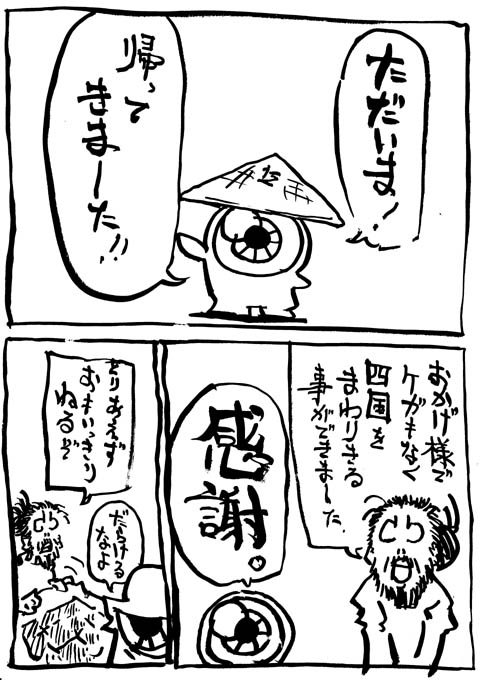 ただいま!
帰って
きました!!
おかげ様で
ケガもなく
四国を
まわりきる
事ができました。
感謝。
とりあえず
おもいっきり
ねるぞ
だらける
なよ